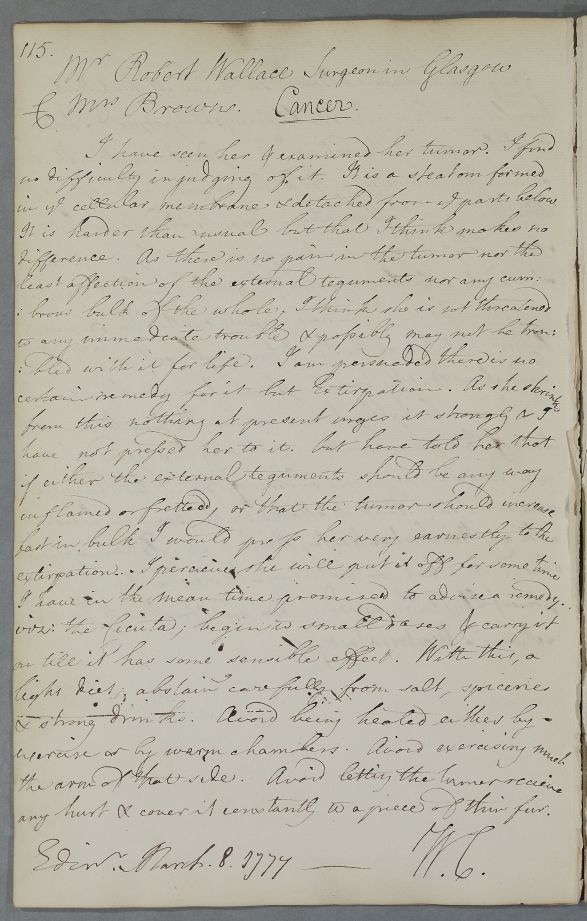 115.
Mr Robert Wallace Surgeon in Glasgow
£ Mrs Browns. Cancer.
I have seen her & examined her tumor. I find
no difficulty in judging of it. It is a steatom formed
in ye cellular membrane & detached from ye parts below
It is harder than usual but that I think makes no
difference. As there is no pain in the tumor nor the
least affection of the external teguments nor any cum:
:brous bulk of the whole, I think she is not threatened
to any immediate trouble & possibly may not be trou:
:bled with it for life. I am persuaded there is no
certain remedy for it but Extirpation. As she shrinks
from this nothing at present urges it strongly & I
have not pressed her to it. but have told her that
if either the external teguments should be any way
inflamed or fretted, or that the tumor should increase
fast in bulk I would press her very earnestly to the
extirpation. I perceive she will put it off for some time
I have in the mean time promised to advise a remedy.
viz: the Cicuta; begin in small doses & carry it
on till it has some sensible effect. With this, a
light diet; abstain carefully from salt, spiceries
& strong drinks. Avoid being heated either by
exercise or by warm chambers. Avoid exercising much
the arm of that side. Avoid letting the tumor recieve
any hurt & cover it constantly wt a piece of thin fur.
Edinr. March. 8. 1777 W.C.